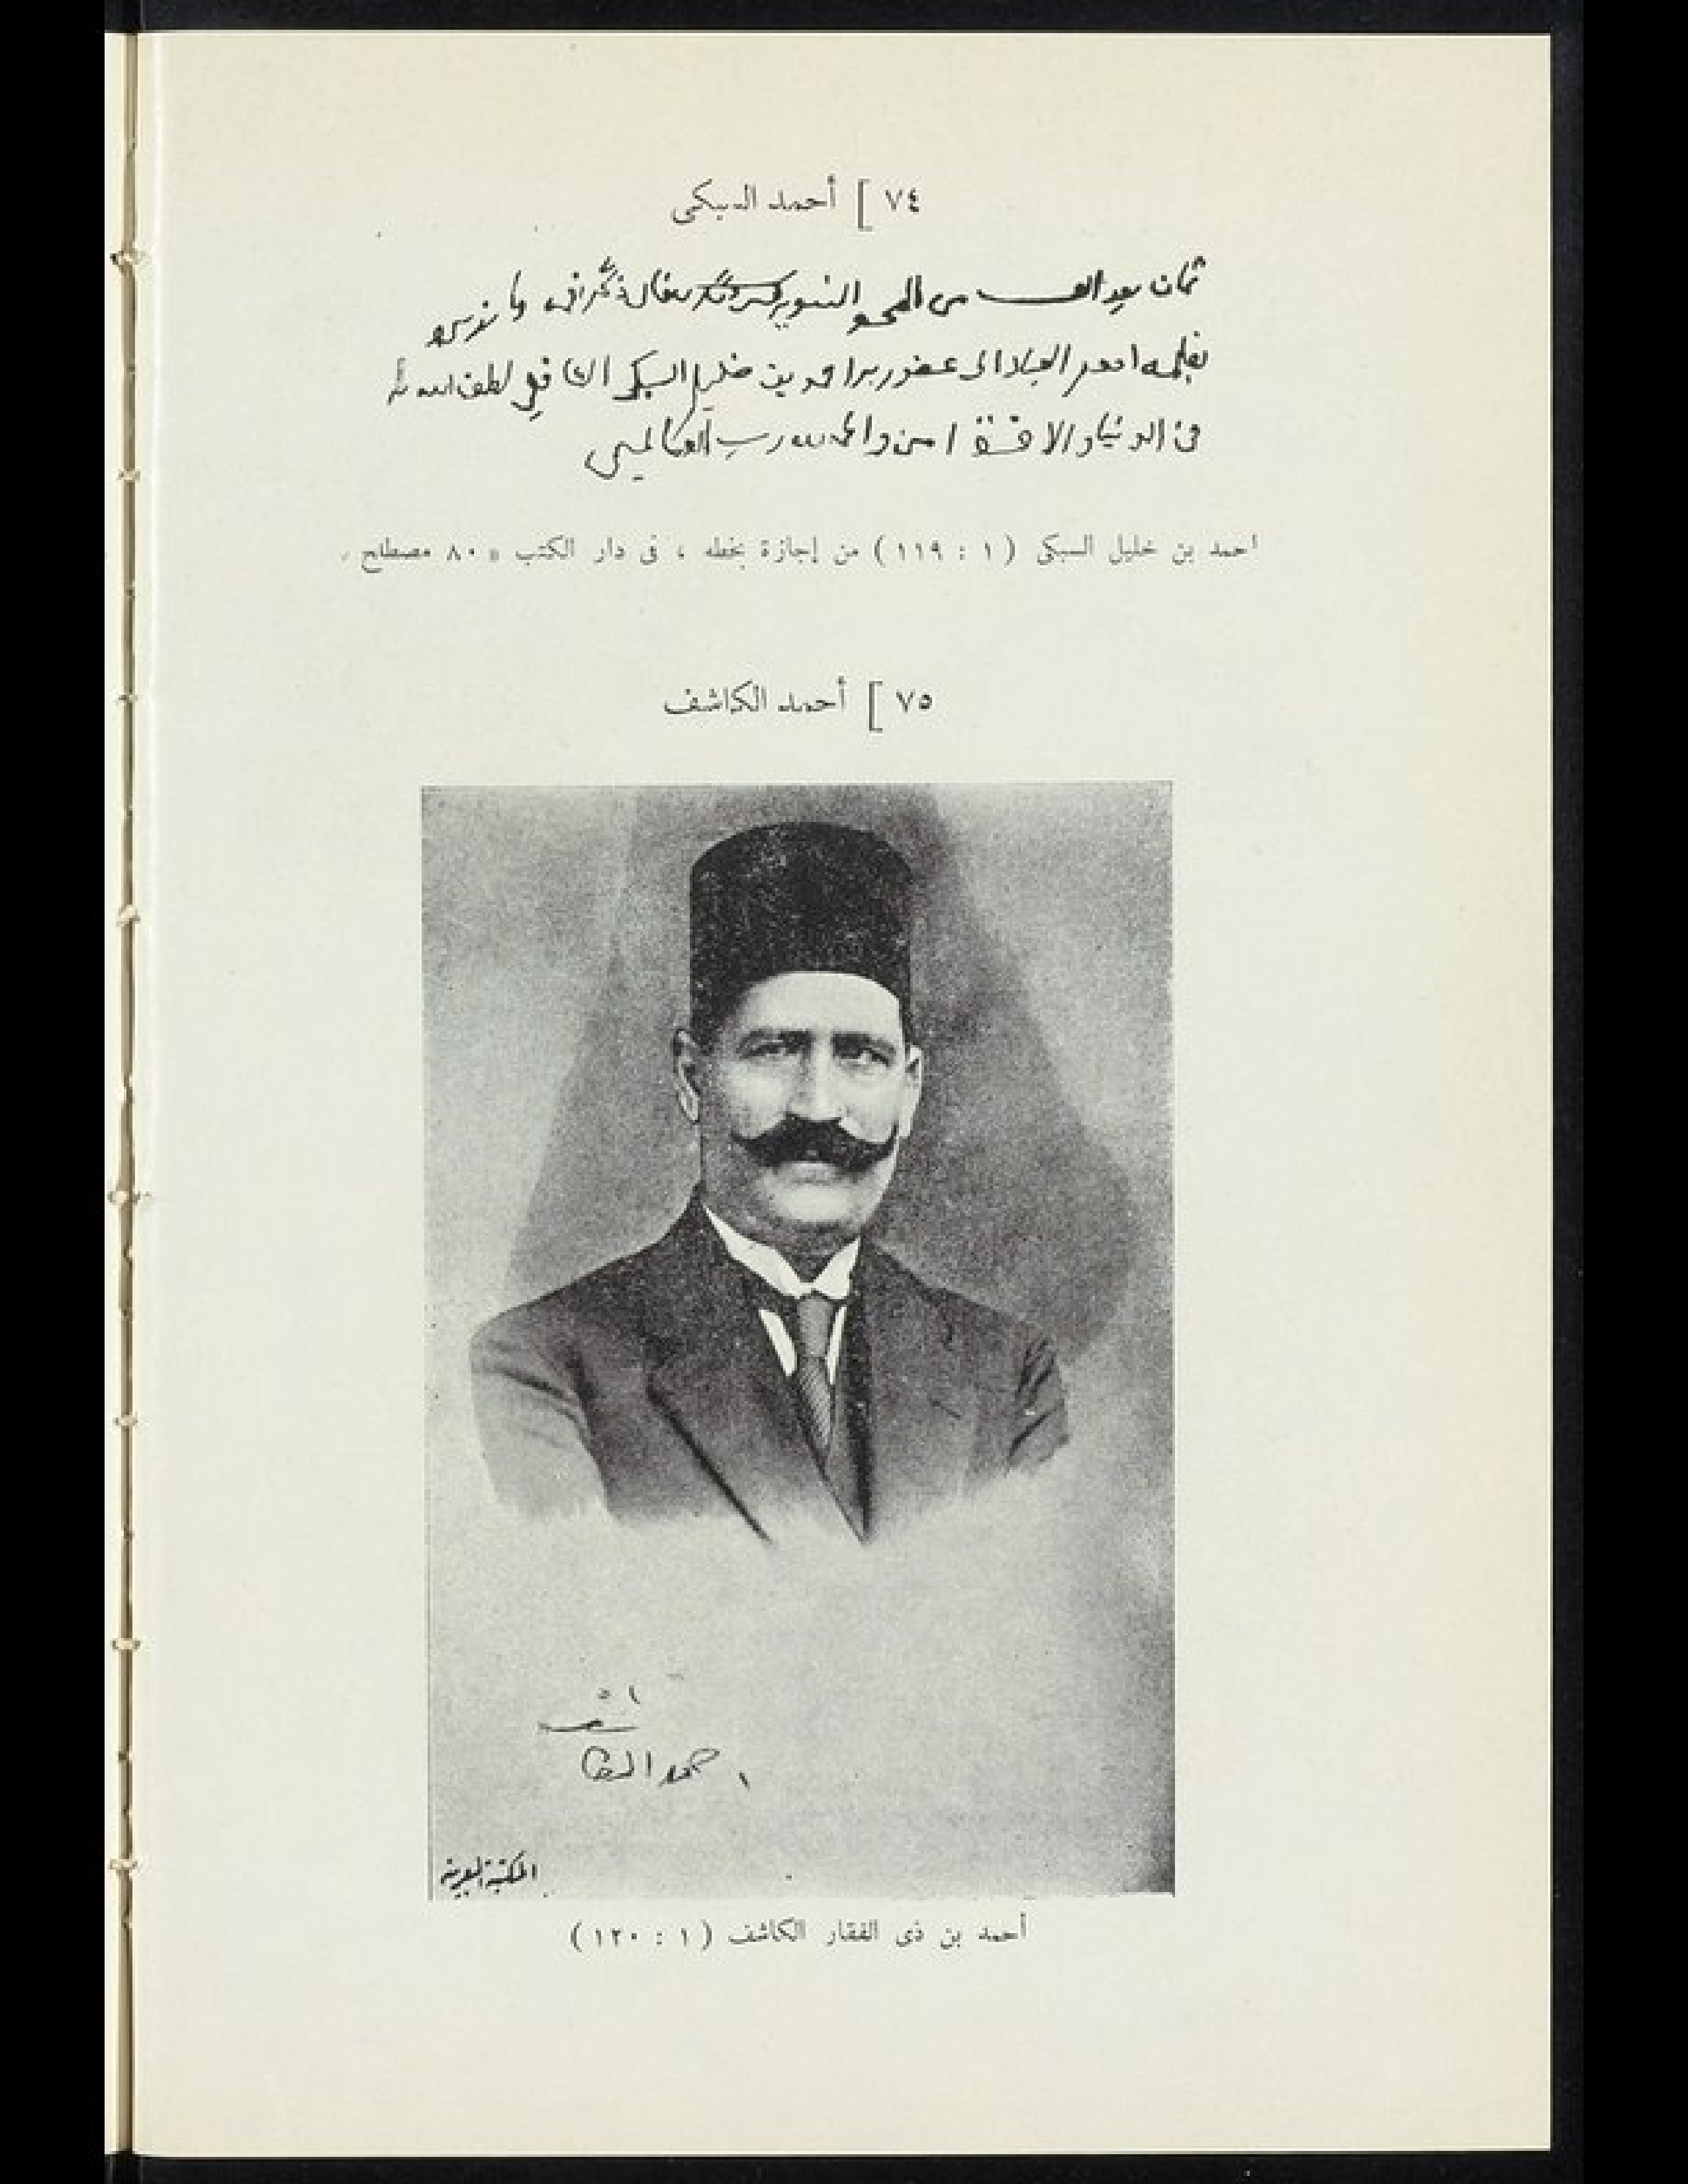 ٧٤ [ أحمد السبكى
ثمان بعد الألف من الهجرة النبوية
بقلمه افقر العباد الى عفو ربه احمد بن خليل السبكى الشافعى لطف الله به
فى الدنيا والاخرة امين والحمد لله رب العالمين
احمد بن خليل السبكى ( ١ : ١١٩ ) من إجازة بخطه ، فى دار الكتب « ٨٠ مصطلح »
٧٥ [ أحمد الكاشف
احمد الكاشف
المكتبة العربية
أحمد بن ذى الفقار الكاشف ( ١ : ١٢٠ )